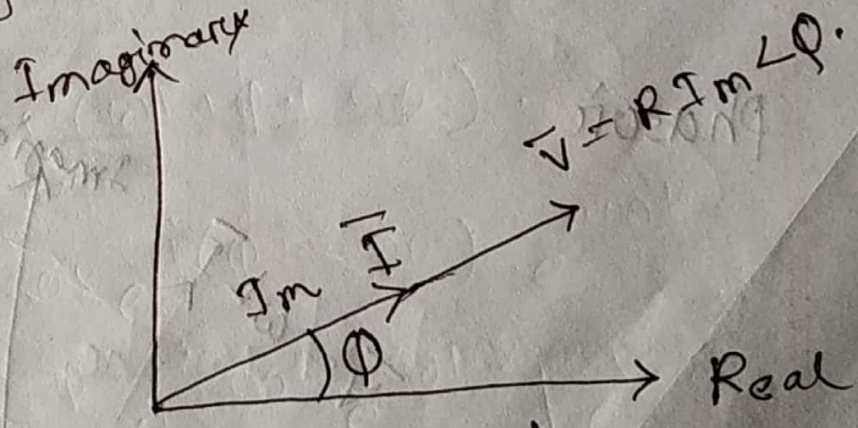 Imaginary
V̄ = R Im ∠φ.
Im Ī
φ
Real